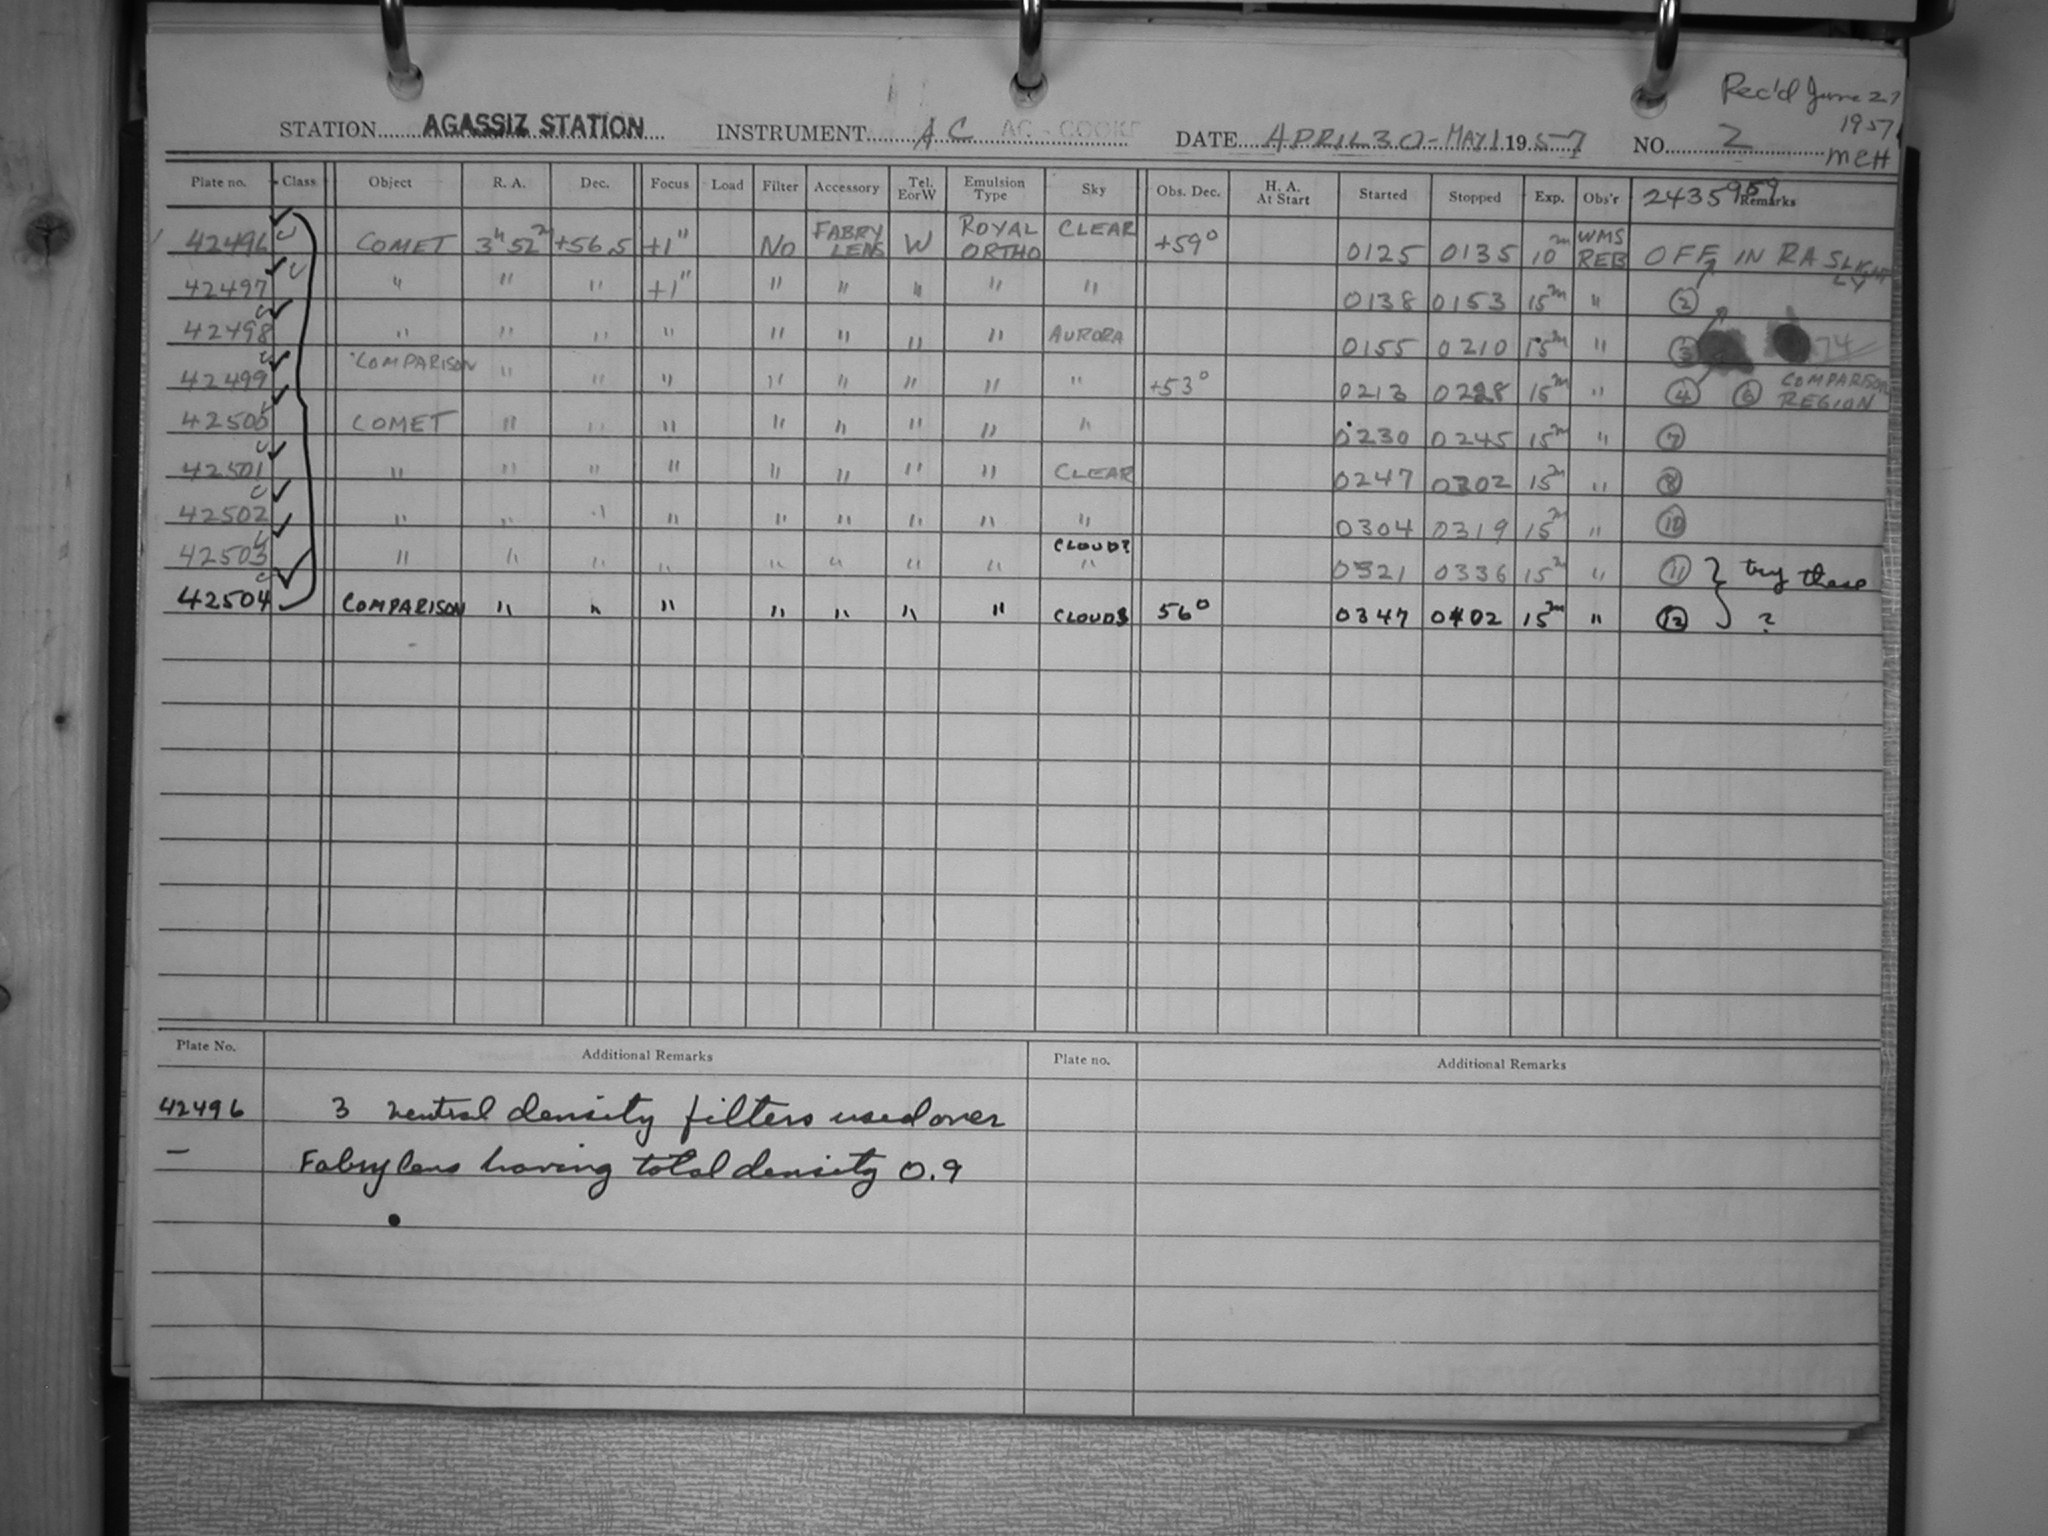 Rec'd June 27
1957
MCH
STATION AGASSIZ STATION INSTRUMENT AC AC - COOKE DATE APRIL 30 - MAY 1 1957 NO. 2
Plate no. Class Object R. A. Dec. Focus Load Filter Accessory Tel. E or W Emulsion Type Sky Obs. Dec. H. A. At Start Started Stopped Exp. Obs'r 2435959 Remarks
42496 C COMET 3h 52 +56.5 +1" No FABRY LENS W ROYAL ORTHO CLEAR +59° 0125 0135 10m WMS REB OFF IN RA SLIGHTLY
42497 C " " " +1" " " " " " 0138 0153 15m " 2
42498 C " " " " " " " " AURORA 0155 0210 15m " 3
42499 C COMPARISON " " " " " " " " +53° 0213 0228 15m " 4 6 COMPARISON REGION
42500 C COMET " " " " " " " " 0230 0245 15m " 7
42501 C " " " " " " " " CLEAR 0247 0302 15m " 8
42502 C " " " " " " " " " 0304 0319 15m " 10
42503 C " " " " " " " " CLOUD? " 0321 0336 15m " 11 } try these
42504 C COMPARISON " " " " " " " CLOUDS 56° 0347 0402 15m " 12 } ?
Plate No. Additional Remarks Plate no. Additional Remarks
42496 3 neutral density filters used over
— Fabry lens having total density 0.9